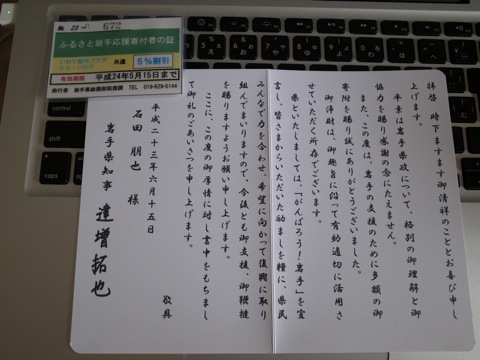 ふるさと岩手応援寄付者の証
共通
5%割引
有効期限 平成24年5月15日まで
発行者 岩手県総務部税務課 TEL 019-629-5144
拝啓 時下ますます御清祥のこととお喜び申し
上げます。
平素は岩手県政について、格別の御理解と御
協力を賜り感謝の念にたえません。
また、この度は、岩手の支援のために多額の御
寄附を賜り誠にありがとうございました。
御浄財は、御趣旨に沿って有効適切に活用さ
せていただく所存でございます。
県といたしましては、「がんばろう!岩手」を宣
言し、皆さまからいただいた励ましを糧に、県民
みんなで力を合わせ、希望に向かって復興に取り
組んでまいりますので、今後とも御支援、御鞭撻
を賜りますようお願い申し上げます。
ここに、この度の御厚情に対し書中をもちまし
て御礼のごあいさつを申し上げます。
敬具
平成二十三年六月十五日
石田 朋也 様
岩手県知事 達増拓也